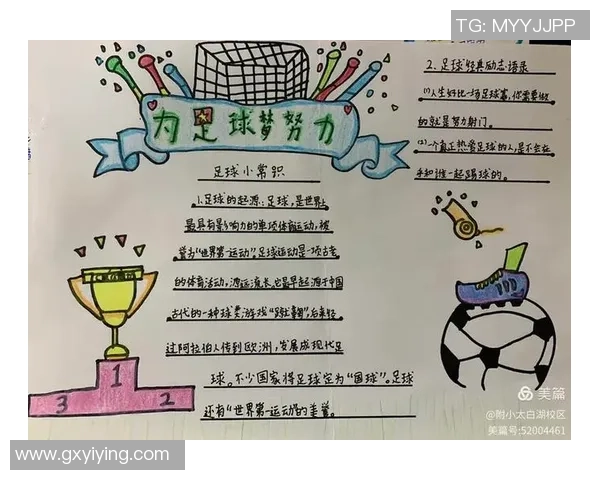 TG: MYYJJPP
为足球梦努力
足球小常识
1、足球的起源：足球，是世界上
最具有影响力的单项体育运动，被
誉为“世界第一运动”，足球运动是一项古老
的体育活动，源远流长。它最早起源于中国
古代的一种球类游戏“蹴鞠”，后来经
过阿拉伯人传到欧洲，发展成现代足
球。不少国家将足球定为“国球”。足球
还有“世界第一运动”的美誉。
2、足球经典励志语录
(1)人生好比一场足球赛，你需要做
的就是努力射门。
(2)一个真正热爱足球的人，是不会在
乎和谁一起踢球的。
1
2
3
美篇
@附小太白湖校区
美篇号:52004461
www.gxyiying.com